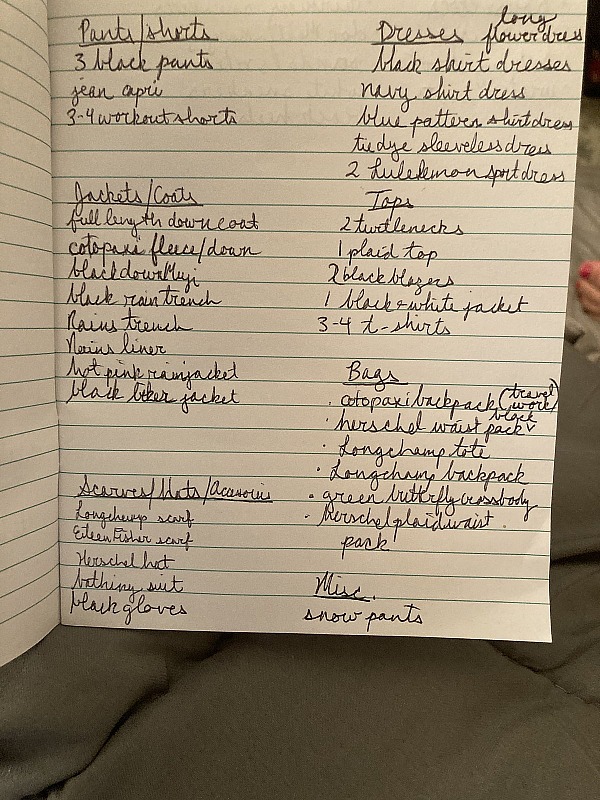 Pants/shorts
3 black pants
jean capri
3-4 workout shorts
Jackets/Coats
full length down coat
cotopaxi fleece/down
black down Muji
black rain trench
Rains trench
Rains liner
hot pink rainjacket
black biker jacket
Scarves/Hats/Accessories
Longchamp scarf
Eileen Fisher scarf
Herschel hat
bathing suit
black gloves
Dresses long flower dress
black shirt dresses
navy shirt dress
blue pattern shirtdress
tie dye sleeveless dress
2 Lululemon sport dress
Tops
2 turtlenecks
1 plaid top
2 black blazers
1 black & white jacket
3-4 t-shirts
Bags
· cotopaxi backpack (travel/work)
· herschel waist pack black
· Longchamp tote
· Longchamp backpack
· green butterfly crossbody
· herschel plaid waist
pack
Misc.
snow pants